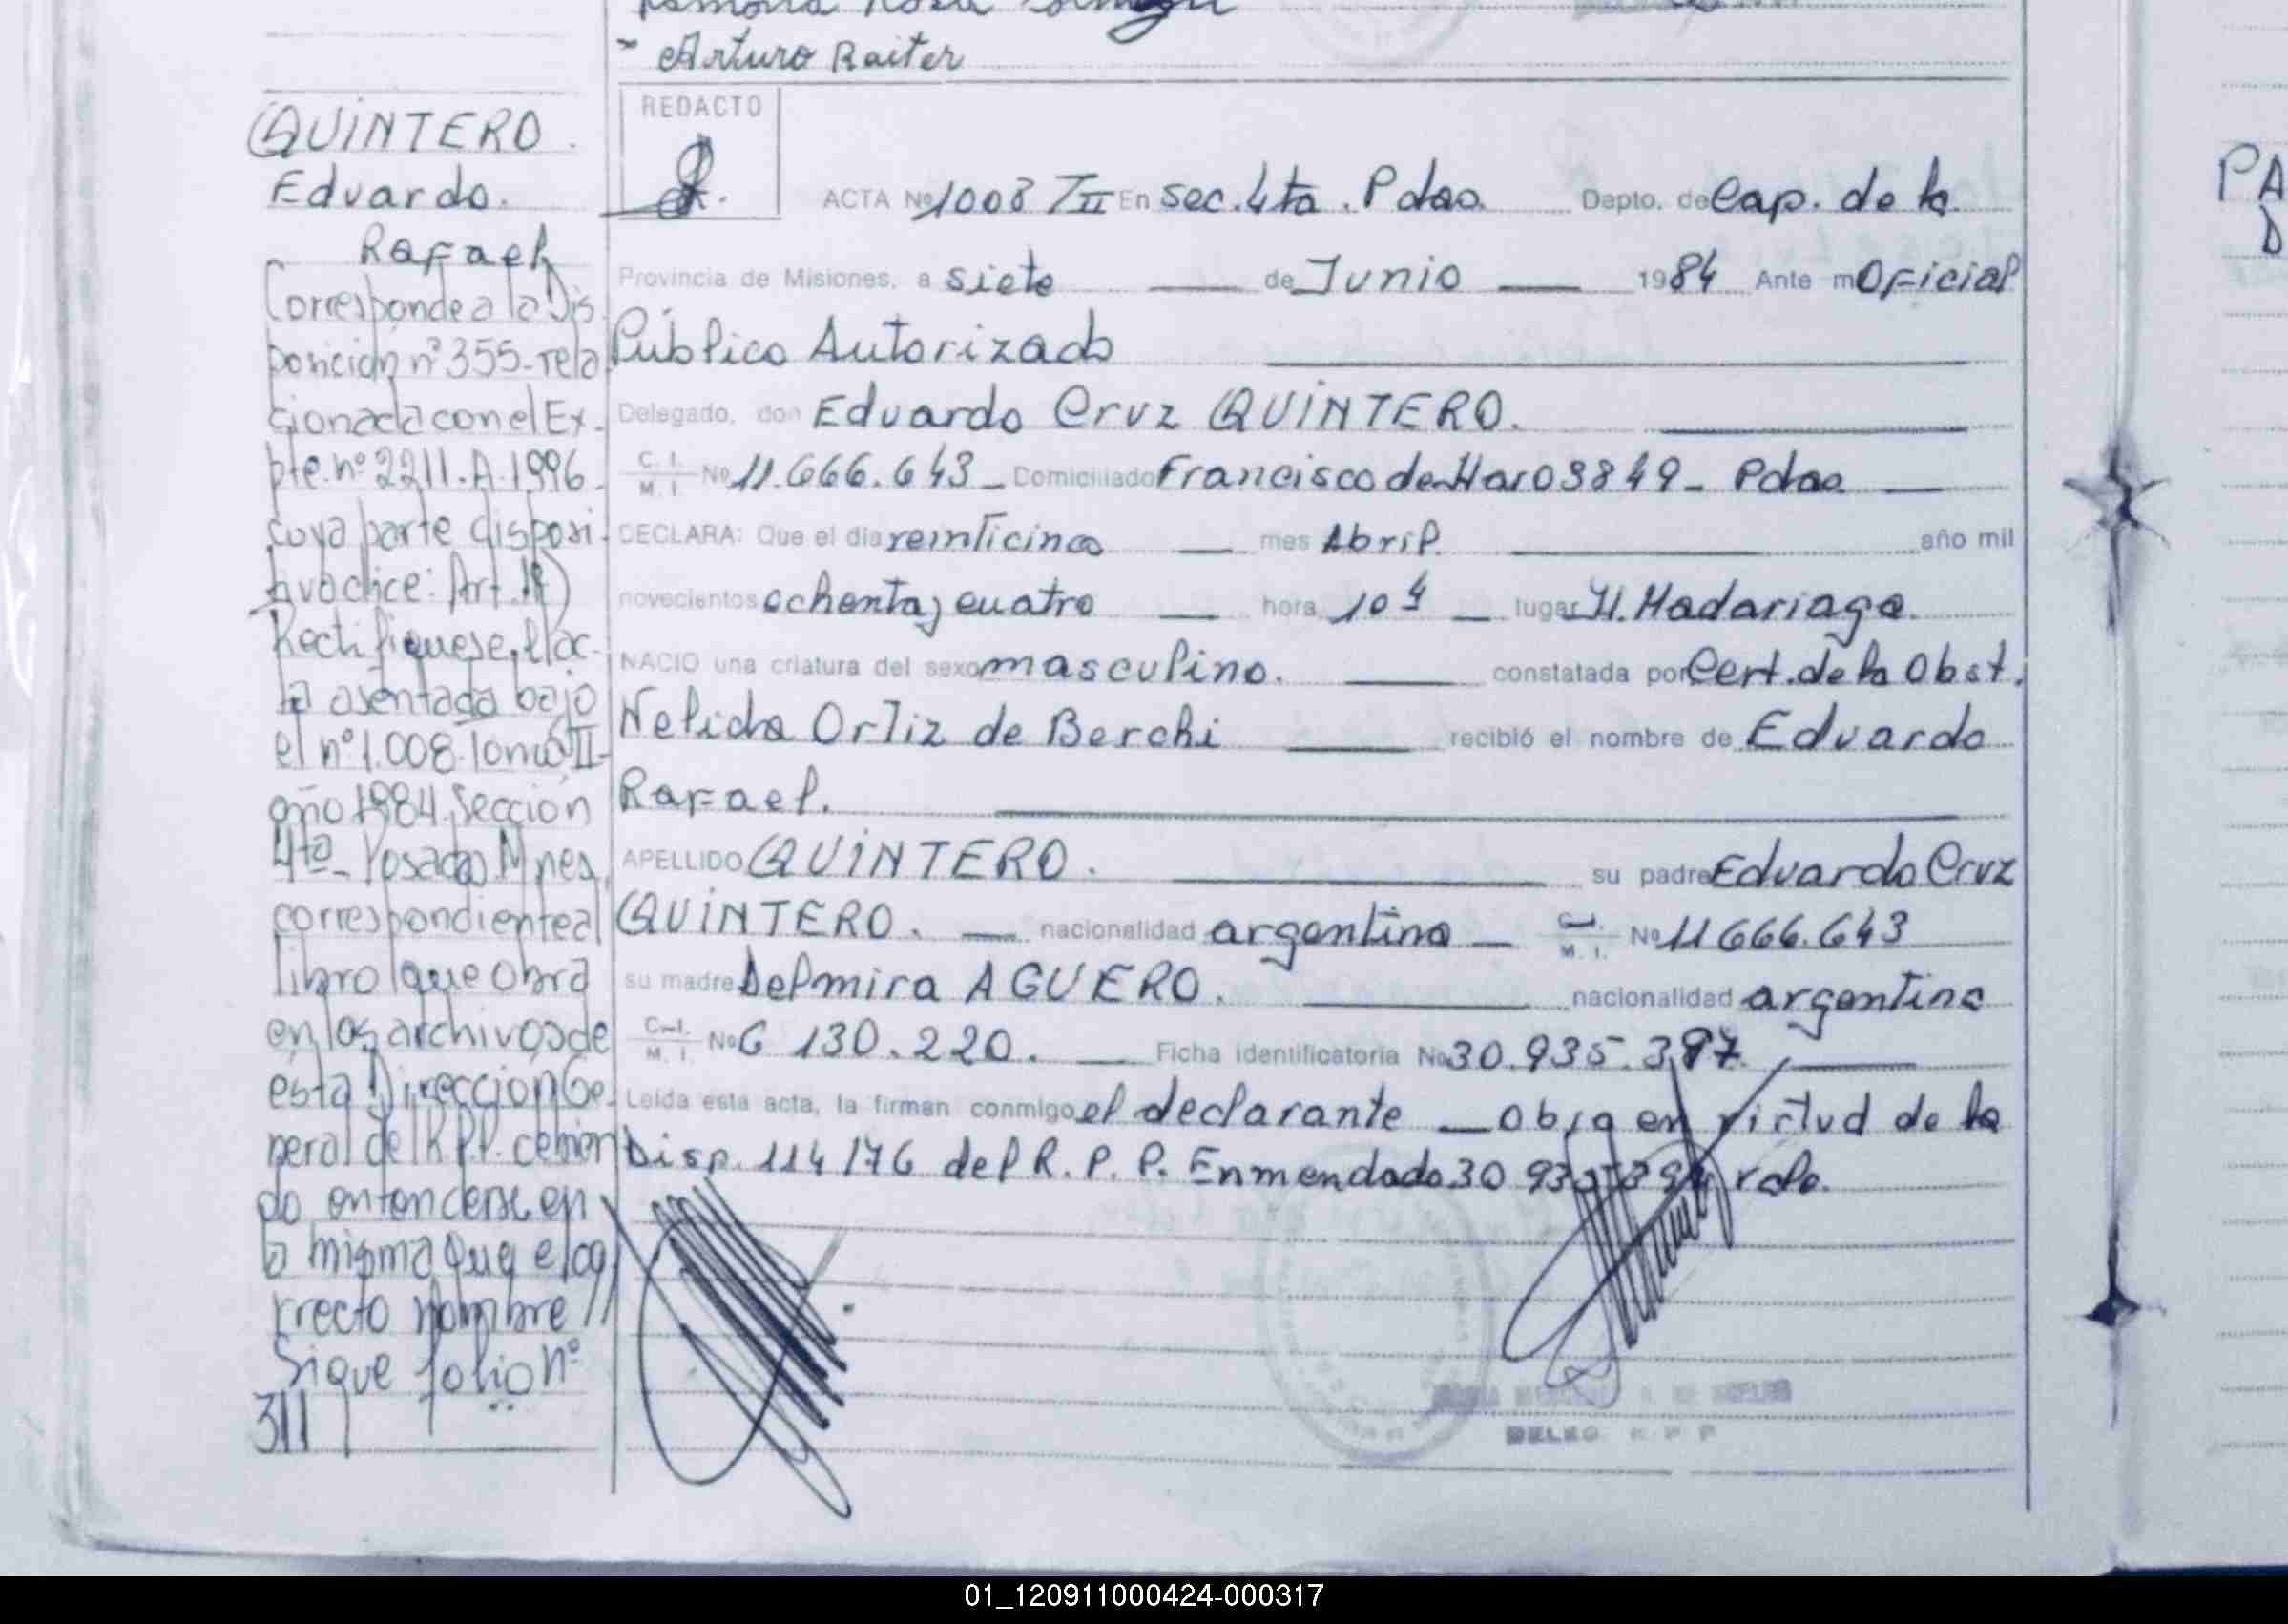 Ramona Rosa
Arturo Raiter
QUINTERO.
Eduardo.
Rafael
Corresponde a la Dis
posición nº 355-rela
cionada con el Ex-
pte. nº 2211.A.1996-
cuya parte disposi-
tiva dice: Art. 1º)
Rectifiquese el ac-
ta asentada bajo
el nº 1.008. Tomo II-
año 1984. Sección
4ta- Posadas Mnes,
correspondiente al
libro que obra
en los archivos de
esta Dirección Ge-
neral del R.P.P. debien
do entenderse en
la misma que el co
rrecto nombre //
Sigue folio nº
311
REDACTO
ACTA Nº 1008 TII En sec. 4ta. Pdas. Dapto. de Cap. de la
Provincia de Misiones, a siete de Junio 1984 Ante mi Oficial
Público Autorizado
Delegado, don Eduardo Cruz QUINTERO.
C. I. M. I. Nº 11.666.643 - Domiciliado Francisco de Haro 3849 - Pdas.
DECLARA: Que el dia veinticinco mes Abril año mil
novecientos ochenta y cuatro hora 10 lugar H. Madariaga.
NACIO una criatura del sexo masculino. constatada por Cert. de la Obst.
Nelida Ortiz de Berchi recibió el nombre de Eduardo
Rafael.
APELLIDO QUINTERO. su padre Eduardo Cruz
QUINTERO. nacionalidad argentina C.I. M. I. Nº 11 666.643
su madre Delmira AGUERO. nacionalidad argentina
C.I. M. I. Nº 6 130.220. Ficha identificatoria Nº 30.935.397.
Leida esta acta, la firman conmigo el declarante Obra en virtud de la
Disp. 114/76 del R. P. P. Enmendado 30 935 397 vale.
DELEG. R P P
PA
D
01_120911000424-000317